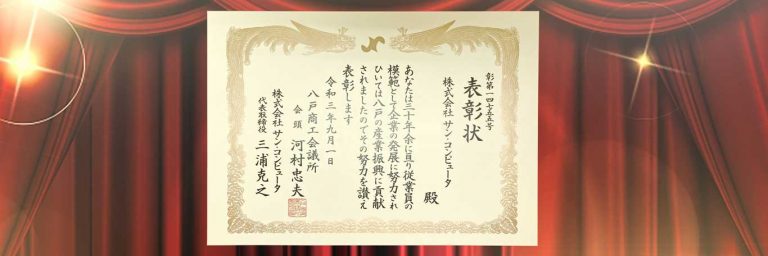 彰第一四七五五号
表彰状
株式会社 サン・コンピュータ
殿
あなたは三十年余に亘り従業員の
模範として企業の発展に努力され
ひいては八戸の産業振興に貢献
されましたのでその努力を讃え
表彰します
令和三年九月一日
八戸商工会議所
会頭 河村忠夫
株式会社 サン・コンピュータ
代表取締役 三浦克之